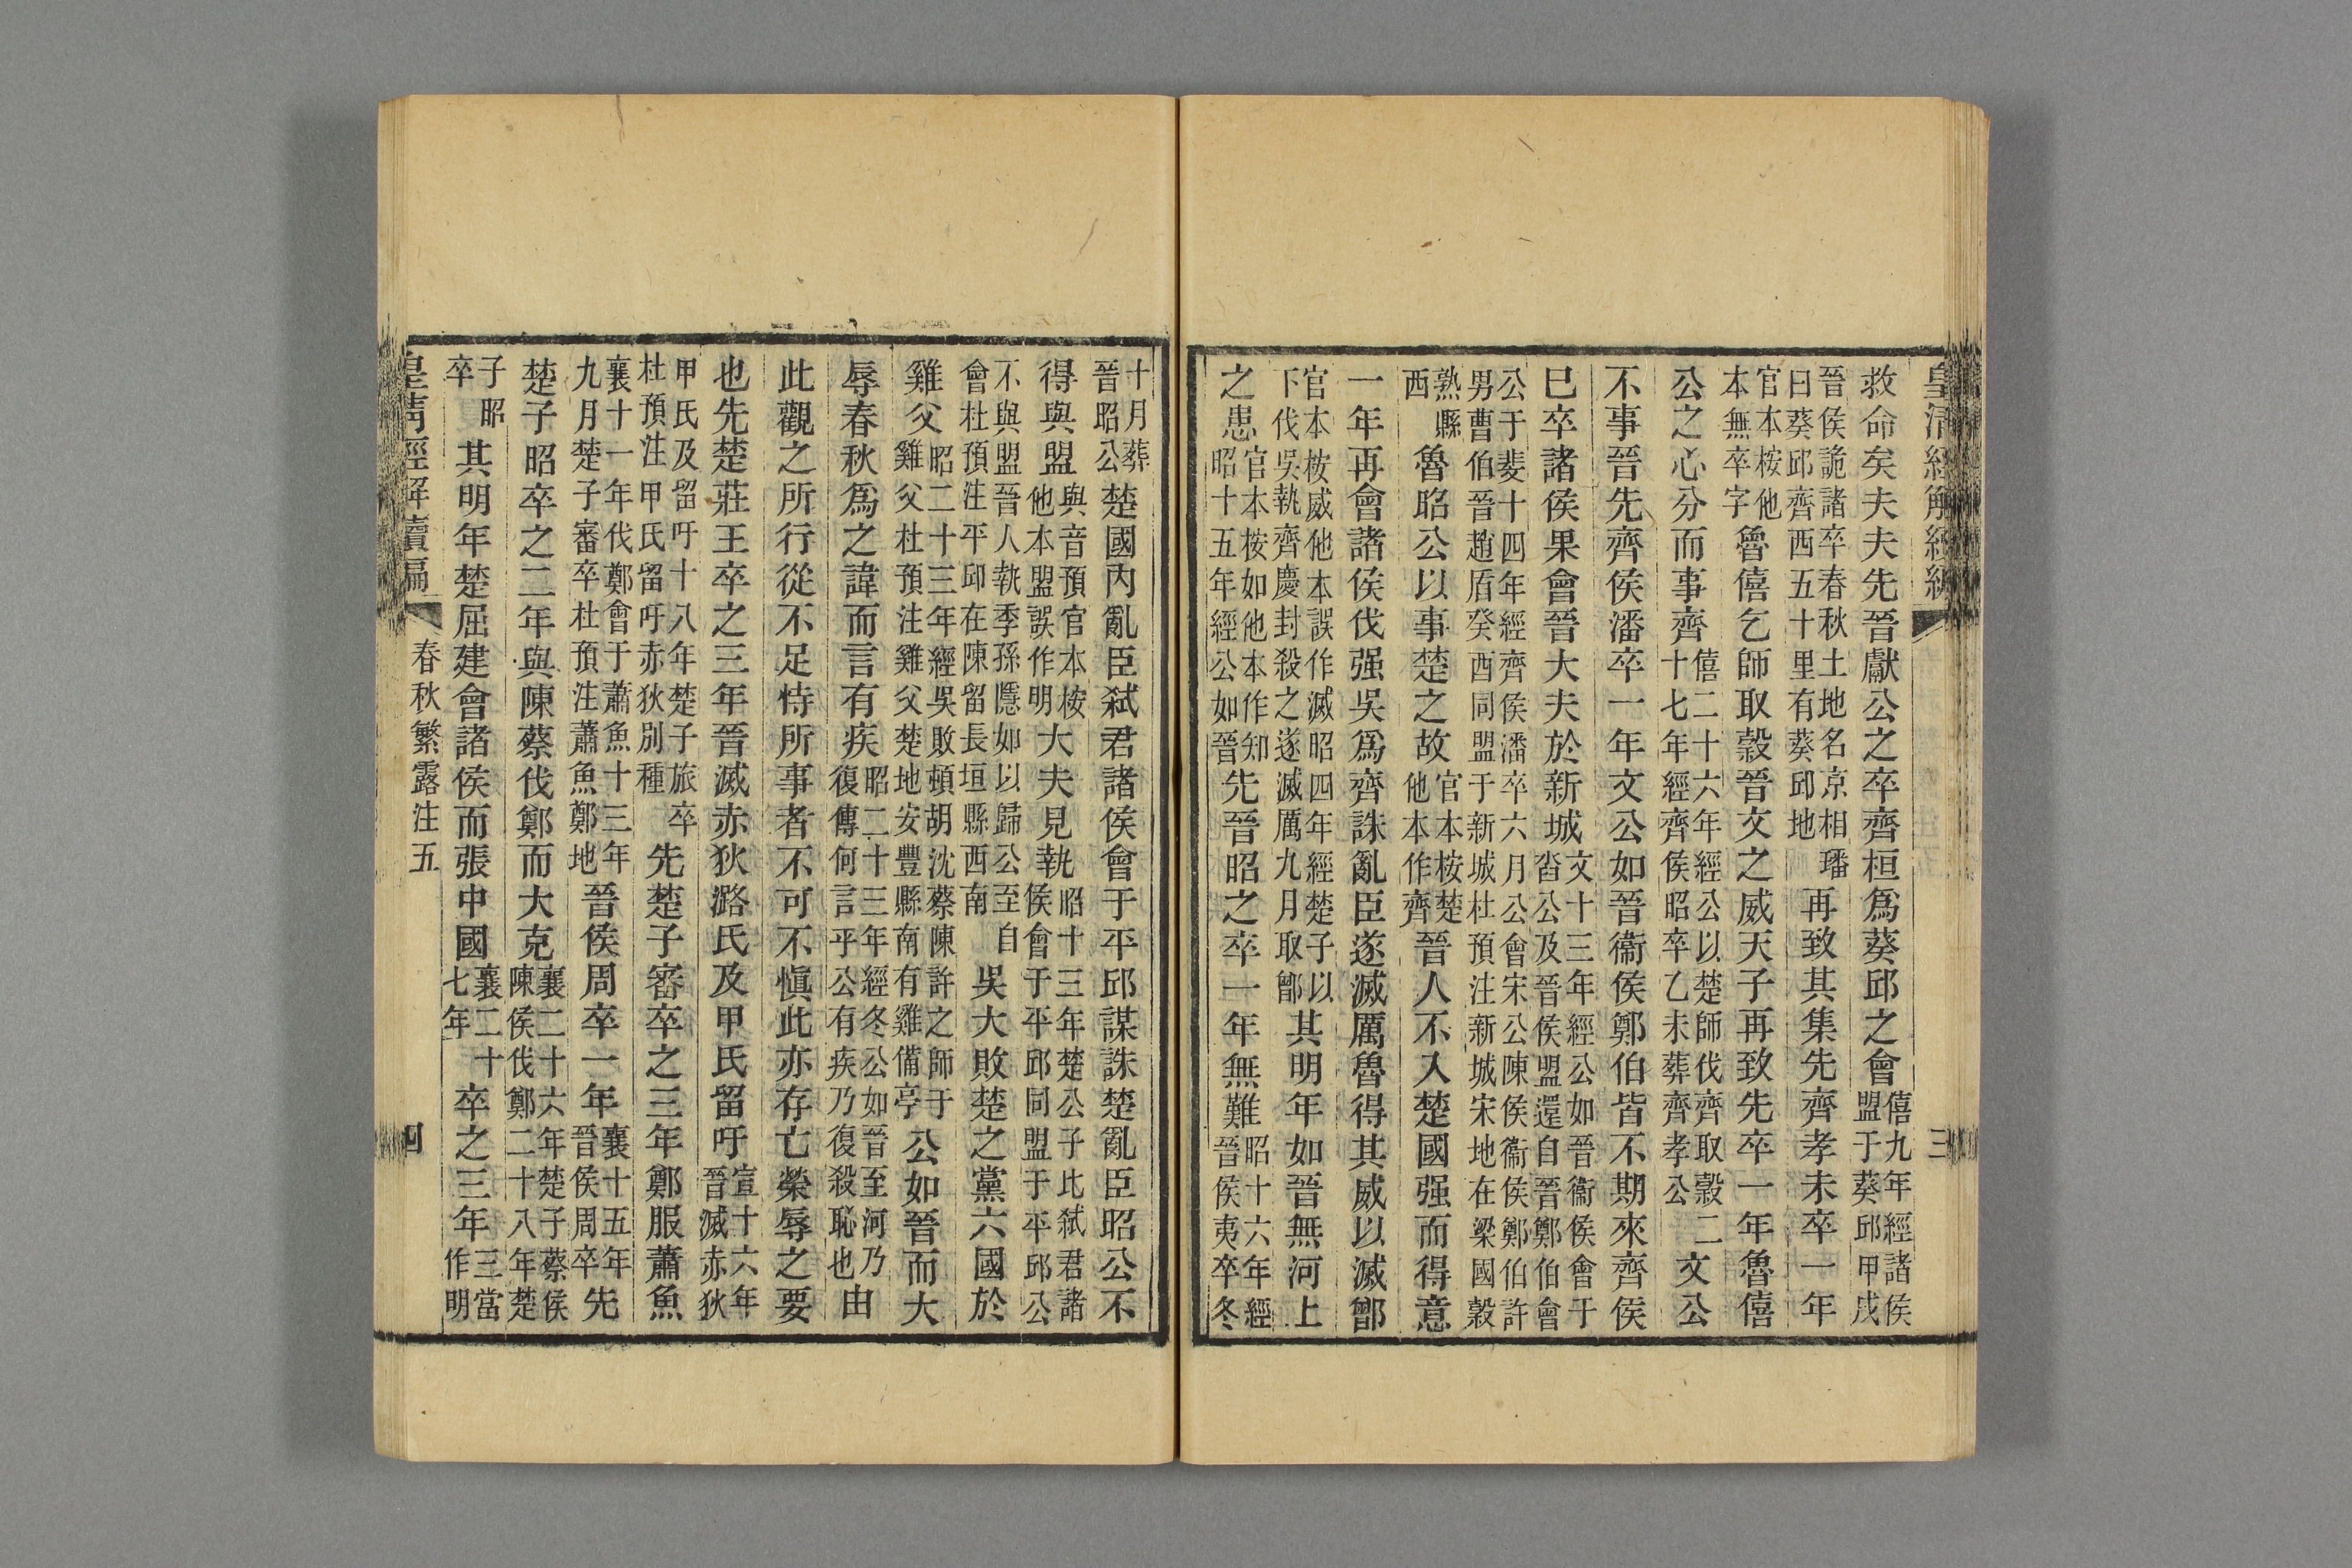 皇清經解
三
救命矣夫夫先晉獻公之卒齊桓爲葵邱之會僖九年經諸侯盟于葵邱甲戌
晉侯詭諸卒春秋土地名京相璠曰葵邱齊西五十里有葵邱地再致其集先齊孝未卒一年
官本桉他本無卒字魯僖乞師取穀晉文之威天子再致先卒一年魯僖
公之心分而事齊僖二十六年經公以楚師伐齊取穀十七年經齊侯昭卒乙未葬齊孝公二文公
不事晉先齊侯潘卒一年文公如晉衞侯鄭伯皆不期來齊侯
已卒諸侯果會晉大夫於新城文十三年經公如晉衞侯會于沓公及晉侯盟還自晉鄭伯會
公于斐十四年經齊侯潘卒六月公會宋公陳侯衞侯鄭伯許男曹伯晉趙盾癸酉同盟于新城杜預注新城宋地在梁國穀
熟縣西魯昭公以事楚之故官本桉楚他本作齊晉人不入楚國强而得意
一年再會諸侯伐强吳爲齊誅亂臣遂滅厲魯得其威以滅鄫
官本桉威他本誤作滅昭四年經楚子以下伐吳執齊慶封殺之遂滅厲九月取鄫其明年如晉無河上
之患官本桉如他本作知昭十五年經公如晉先晉昭之卒一年無難昭十六年經晉侯夷卒冬
十月葬晉昭公楚國內亂臣弒君諸侯會于平邱謀誅楚亂臣昭公不
得與盟與音預官本桉他本盟誤作明大夫見執昭十三年楚公子比弒君諸侯會于平邱同盟于平邱公
不與盟晉人執季孫隱如以歸公至自會杜預注平邱在陳留長垣縣西南吳大敗楚之黨六國於
雞父昭二十三年經吳敗頓胡沈蔡陳許之師于雞父杜預注雞父楚地安豐縣南有雞備亭公如晉而大
辱春秋爲之諱而言有疾昭二十三年經冬公如晉至河乃復傳何言乎公有疾乃復殺恥也由
此觀之所行從不足恃所事者不可不愼此亦存亡榮辱之要
也先楚莊王卒之三年晉滅赤狄潞氏及甲氏留吁宣十六年晉滅赤狄
甲氏及留吁十八年楚子旅卒杜預注甲氏留吁赤狄別種先楚子審卒之三年鄭服蕭魚
襄十一年伐鄭會于蕭魚十三年九月楚子審卒杜預注蕭魚鄭地晉侯周卒一年襄十五年晉侯周卒先
楚子昭卒之二年與陳蔡伐鄭而大克襄二十六年楚子蔡侯陳侯伐鄭二十八年楚
子昭卒其明年楚屈建會諸侯而張中國襄二十七年卒之三年三當作明
皇清經解續編
春秋繁露注五
四